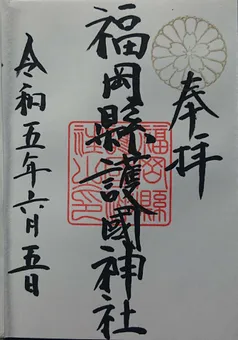 奉拝
福岡縣護國神社
令和五年六月五日
福岡縣護國神社之印